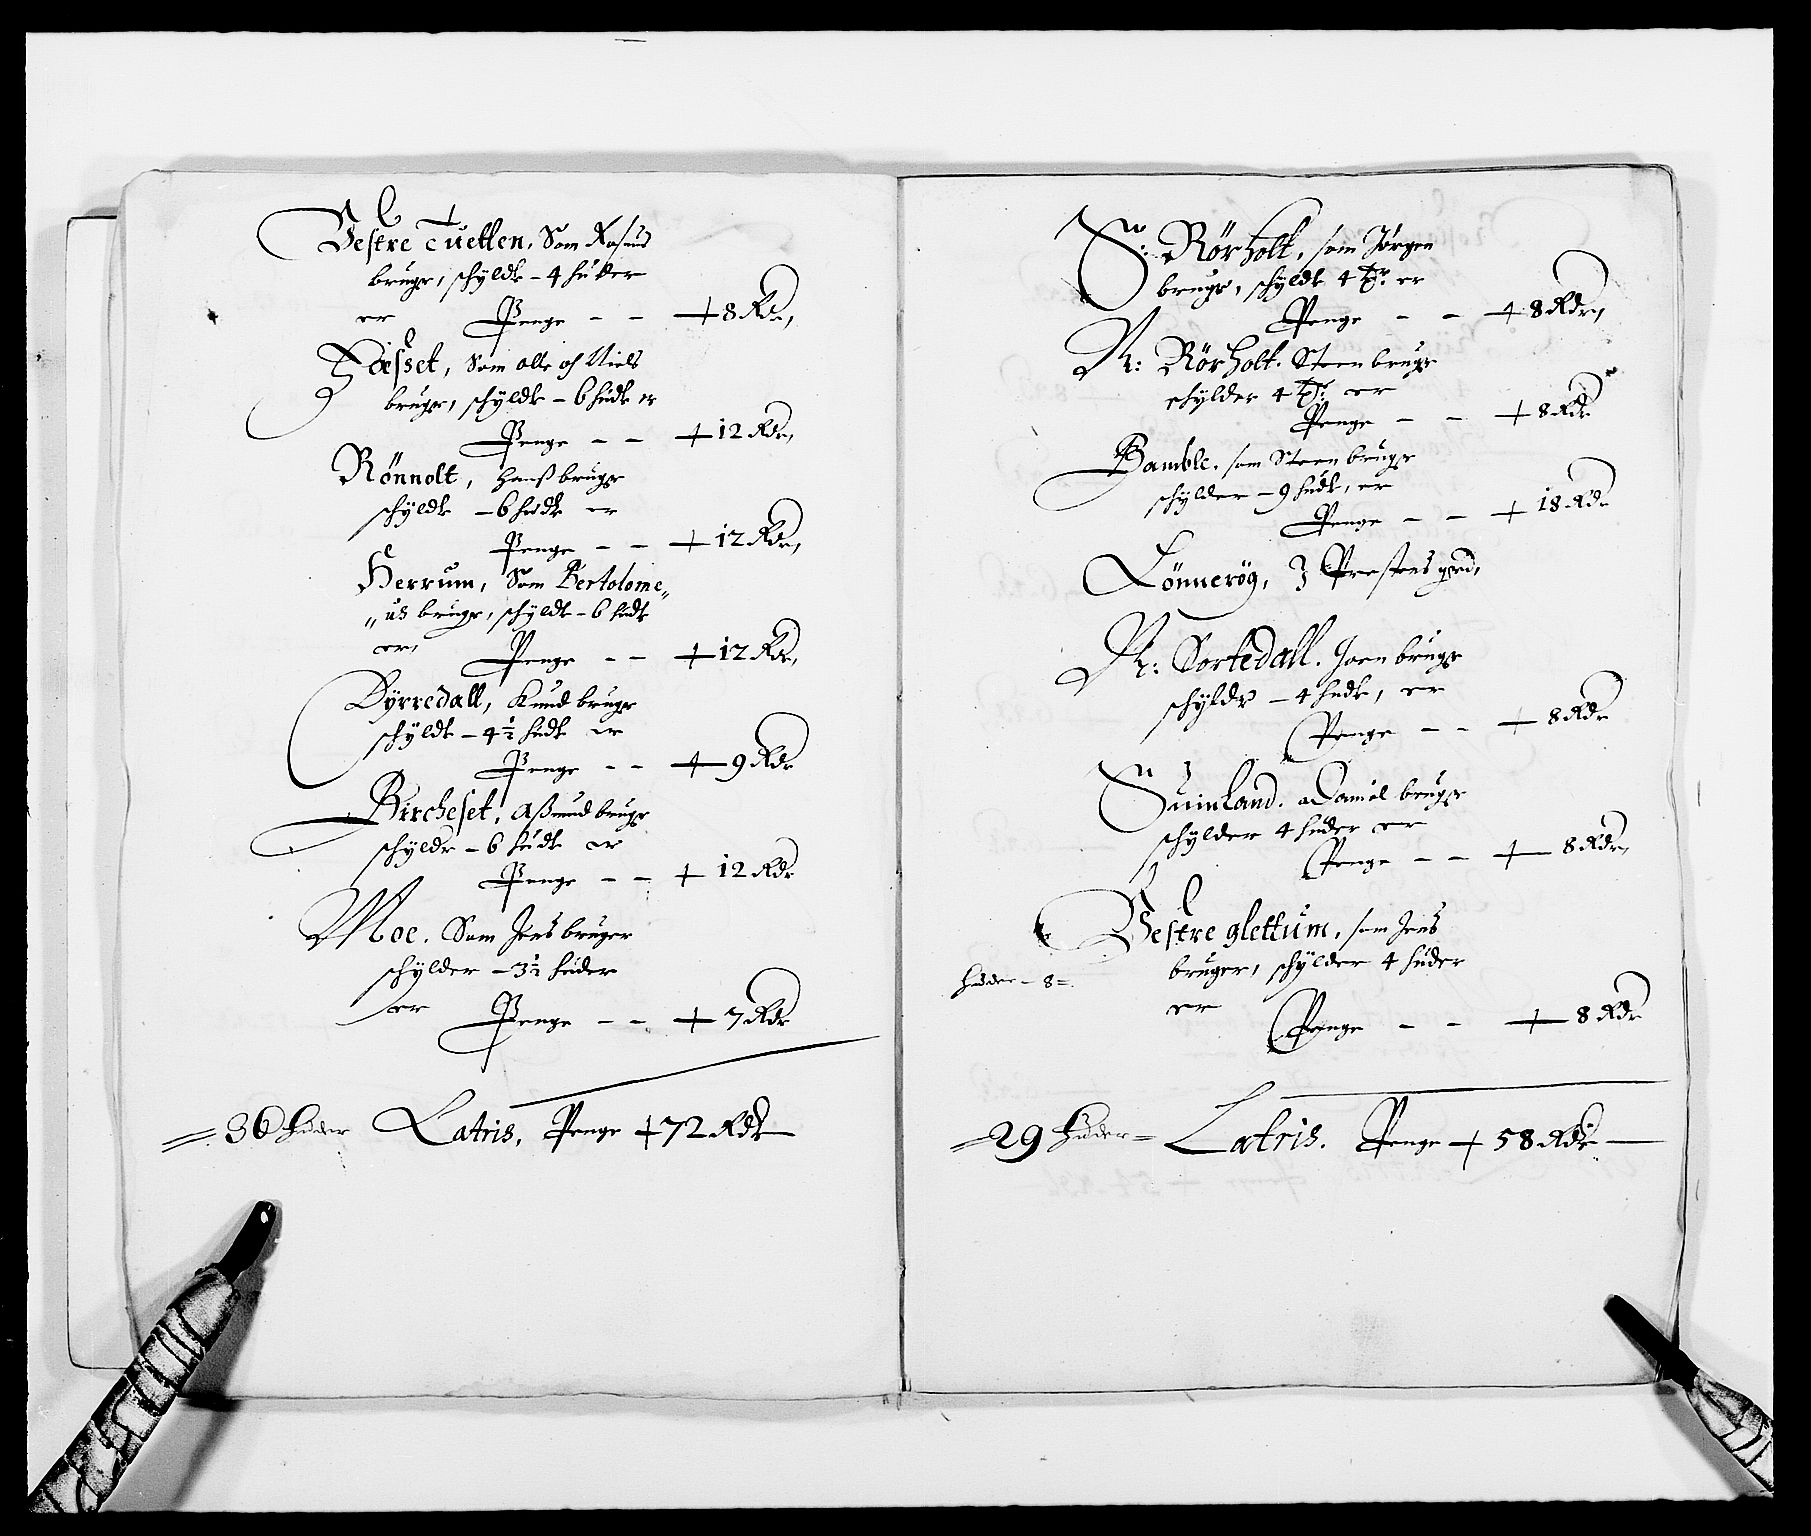 Vestre Tuetten, Som Rasmus
bruger, schylder - 4 huder
er Penge - - + 8 Rdr,
Hæsset, Som Olle och Niels
bruger, schylder - 6 hudr er
Penge - - + 12 Rdr,
Rönnolt, Hanß bruger
schylder - 6 hudr er
Penge - - + 12 Rdr,
Herrum, Som Bertolome„
„us bruger, schylder - 6 hudr
er, Penge - - + 12 Rdr,
Dyrredall, Knud bruger
schylder - 4½ hudr er
Penge - - + 9 Rdr
Bircheset, Aßmud bruger
schylder - 6 hudr er
Penge - - + 12 Rdr
Moe. Som Jens bruger
schylder - 3½ huder
er Penge - - + 7 Rdr
= 36 Huder Latris, Penge + 72 Rdr
S: Rörholt, som Jörgen
bruger, schylder 4 er
Penge - - + 8 Rdr,
N: Rörholt. Steen bruger
schylder 4 er
Penge - - + 8 Rdr
Bamble. som Steen bruger
schylder - 9 hudr, er
Penge - - + 18 Rdr
Lönnerög, Prestens grd,
N: Sortedall. Joen bruger
schylder - 4 hudr, er
Penge - - + 8 Rdr
Suinland. Daniel bruger
schylder 4 huder er
Penge - - + 8 Rdr,
Vestre glettum, som Jens
bruger, schylder 4 huder
Huder - 8 =
er Penge - - + 8 Rdr
= 29 Huder = Latris. Penge + 58 Rdr